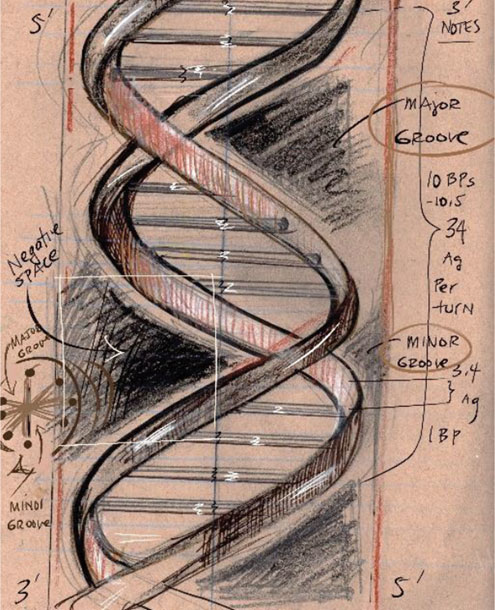 5'
3'
NOTES
MAJOR
GROOVE
10 BPs
-10.5
34
Ag
Per
turn
Negative
SPACE
MINOR
GROOVE
3.4
Ag
1 BP
MAJOR
GROOV
MINOR
GROOVE
3'
5'